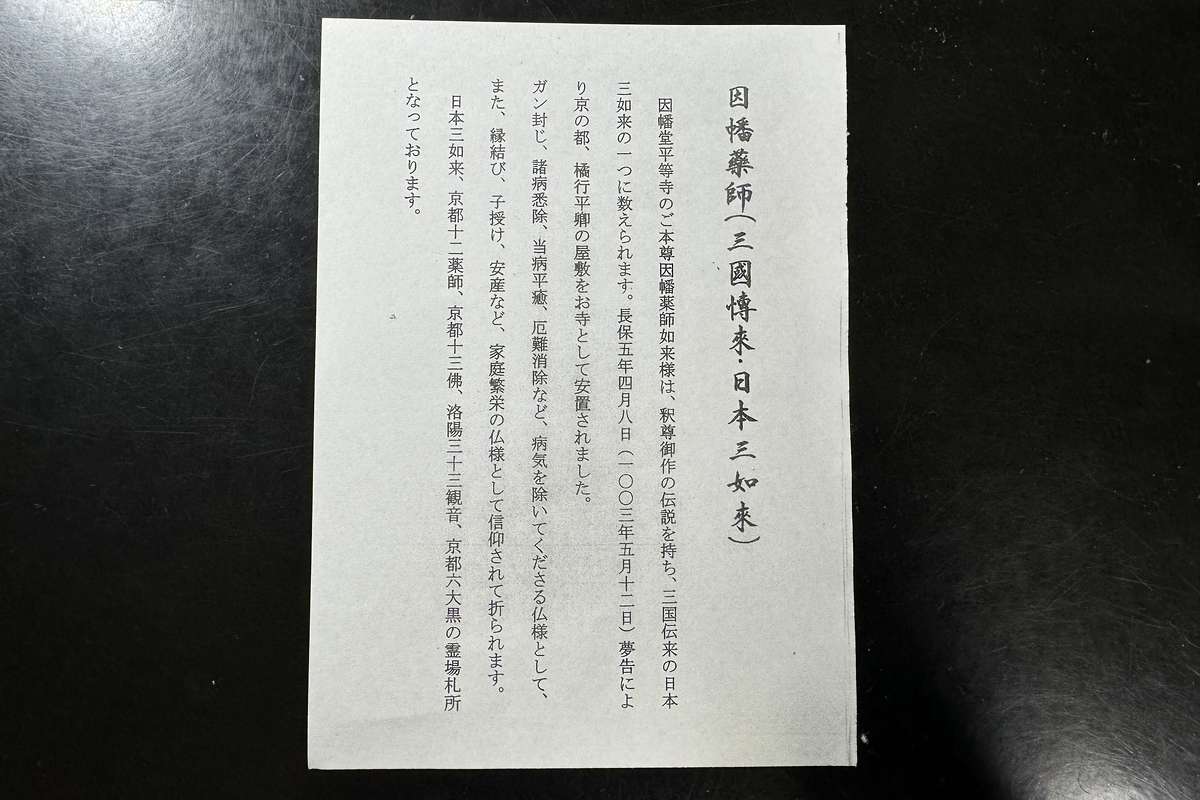 因幡薬師(三國傳來・日本三如來)
因幡堂平等寺のご本尊因幡薬師如来様は、釈尊御作の伝説を持ち、三国伝来の日本
三如来の一つに数えられます。長保五年四月八日(一〇〇三年五月十二日)夢告によ
り京の都、橘行平卿の屋敷をお寺として安置されました。
ガン封じ、諸病悉除、当病平癒、厄難消除など、病気を除いてくださる仏様として、
また、縁結び、子授け、安産など、家庭繁栄の仏様として信仰されて折られます。
日本三如来、京都十二薬師、京都十三佛、洛陽三十三観音、京都六大黒の霊場札所
となっております。